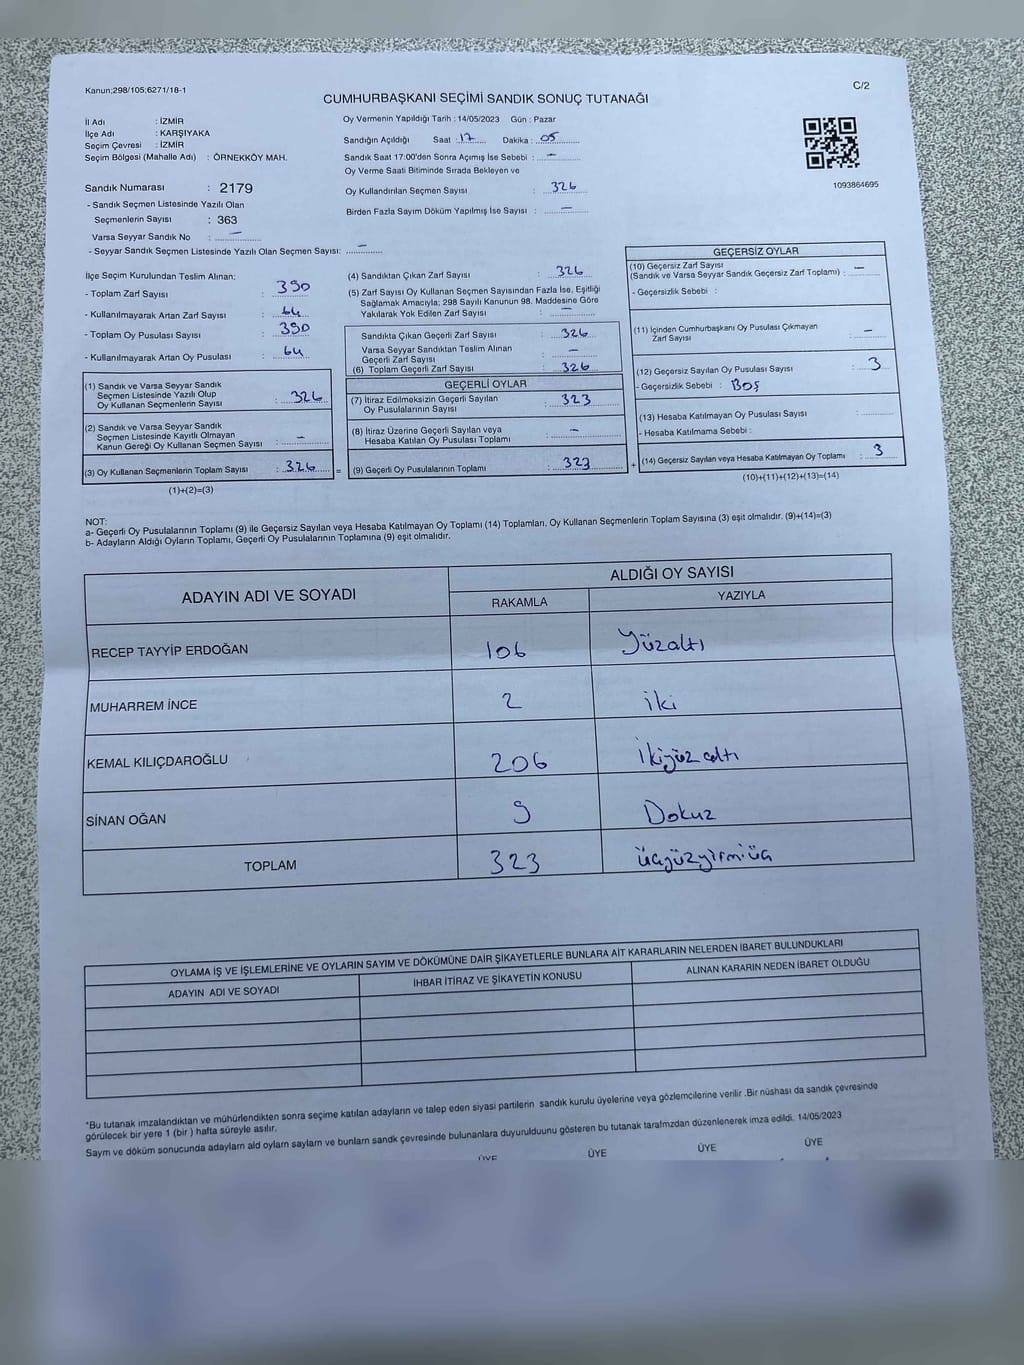 Kanun;298/105;6271/18-1
C/2
CUMHURBAŞKANI SEÇİMİ SANDIK SONUÇ TUTANAĞI
İl Adı : İZMİR
İlçe Adı : KARŞIYAKA
Seçim Çevresi : İZMİR
Seçim Bölgesi (Mahalle Adı) : ÖRNEKKÖY MAH.
Sandık Numarası : 2179
- Sandık Seçmen Listesinde Yazılı Olan
Seçmenlerin Sayısı : 363
Varsa Seyyar Sandık No : —
- Seyyar Sandık Seçmen Listesinde Yazılı Olan Seçmen Sayısı: —
Oy Vermenin Yapıldığı Tarih : 14/05/2023 Gün : Pazar
Sandığın Açıldığı Saat : 17 Dakika : 05
Sandık Saat 17:00'den Sonra Açımış İse Sebebi : —
Oy Verme Saati Bitiminde Sırada Bekleyen ve
Oy Kullandırılan Seçmen Sayısı : 326
Birden Fazla Sayım Döküm Yapılmış İse Sayısı : —
1093864695
İlçe Seçim Kurulundan Teslim Alınan:
- Toplam Zarf Sayısı : 390
- Kullanılmayarak Artan Zarf Sayısı : 64
- Toplam Oy Pusulası Sayısı : 390
- Kullanılmayarak Artan Oy Pusulası : 64
(1) Sandık ve Varsa Seyyar Sandık
Seçmen Listesinde Yazılı Olup
Oy Kullanan Seçmenlerin Sayısı : 326
(2) Sandık ve Varsa Seyyar Sandık
Seçmen Listesinde Kayıtlı Olmayan
Kanun Gereği Oy Kullanan Seçmen Sayısı : —
(3) Oy Kullanan Seçmenlerin Toplam Sayısı : 326 =
(1)+(2)=(3)
(4) Sandıktan Çıkan Zarf Sayısı : 326
(5) Zarf Sayısı Oy Kullanan Seçmen Sayısından Fazla İse, Eşitliği
Sağlamak Amacıyla; 298 Sayılı Kanunun 98. Maddesine Göre
Yakılarak Yok Edilen Zarf Sayısı : —
Sandıkta Çıkan Geçerli Zarf Sayısı : 326
Varsa Seyyar Sandıktan Teslim Alınan
Geçerli Zarf Sayısı : —
(6) Toplam Geçerli Zarf Sayısı : 326
GEÇERLİ OYLAR
(7) İtiraz Edilmeksizin Geçerli Sayılan
Oy Pusulalarının Sayısı : 323
(8) İtiraz Üzerine Geçerli Sayılan veya
Hesaba Katılan Oy Pusulası Toplamı : —
(9) Geçerli Oy Pusulalarının Toplamı : 323 +
GEÇERSİZ OYLAR
(10) Geçersiz Zarf Sayısı
(Sandık ve Varsa Seyyar Sandık Geçersiz Zarf Toplamı) : —
- Geçersizlik Sebebi :
(11) İçinden Cumhurbaşkanı Oy Pusulası Çıkmayan
Zarf Sayısı : —
(12) Geçersiz Sayılan Oy Pusulası Sayısı : 3
- Geçersizlik Sebebi : BOŞ
(13) Hesaba Katılmayan Oy Pusulası Sayısı :
- Hesaba Katılmama Sebebi :
(14) Geçersiz Sayılan veya Hesaba Katılmayan Oy Toplamı : 3
(10)+(11)+(12)+(13)=(14)
NOT:
a- Geçerli Oy Pusulalarının Toplamı (9) ile Geçersiz Sayılan veya Hesaba Katılmayan Oy Toplamı (14) Toplamları, Oy Kullanan Seçmenlerin Toplam Sayısına (3) eşit olmalıdır. (9)+(14)=(3)
b- Adayların Aldığı Oyların Toplamı, Geçerli Oy Pusulalarının Toplamına (9) eşit olmalıdır.
ADAYIN ADI VE SOYADI ALDIĞI OY SAYISI
RAKAMLA YAZIYLA
RECEP TAYYİP ERDOĞAN 106 Yüzaltı
MUHARREM İNCE 2 iki
KEMAL KILIÇDAROĞLU 206 İkiyüz altı
SİNAN OĞAN 9 Dokuz
TOPLAM 323 üçyüzyirmiüç
OYLAMA İŞ VE İŞLEMLERİNE VE OYLARIN SAYIM VE DÖKÜMÜNE DAİR ŞİKAYETLERLE BUNLARA AİT KARARLARIN NELERDEN İBARET BULUNDUKLARI
ADAYIN ADI VE SOYADI İHBAR İTİRAZ VE ŞİKAYETİN KONUSU ALINAN KARARIN NEDEN İBARET OLDUĞU
*Bu tutanak imzalandıktan ve mühürlendikten sonra seçime katılan adayların ve talep eden siyasi partilerin sandık kurulu üyelerine veya gözlemcilerine verilir .Bir nüshası da sandık çevresinde
görülecek bir yere 1 (bir ) hafta süreyle asılır.
Saym ve döküm sonucunda adaylarn ald oylarn saylarn ve bunlarn sandk çevresinde bulunanlara duyurulduunu gösteren bu tutanak tarafmzdan düzenlenerek imza edildi. 14/05/2023
ÜYE ÜYE ÜYE ÜYE